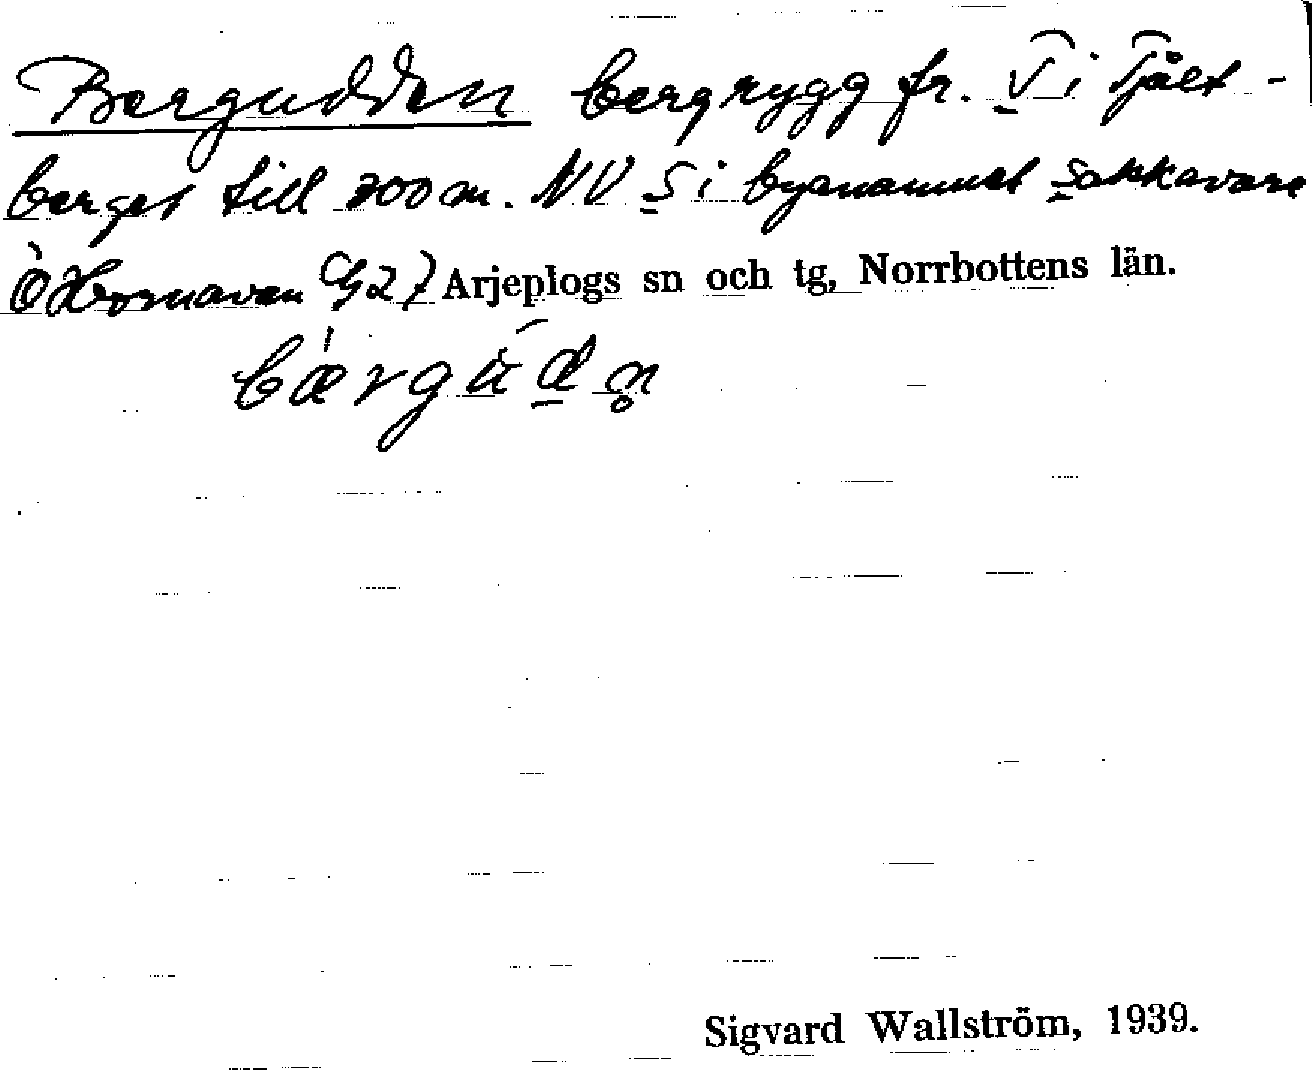 Bergudden bergrygg fr. V i Tjält-
berget till 700 m. NV S i bynamnet Sakkavare
Ö Hornavan G27 Arjeplogs sn och tg, Norrbottens län.
bærgudn̥
Sigvard Wallström, 1939.